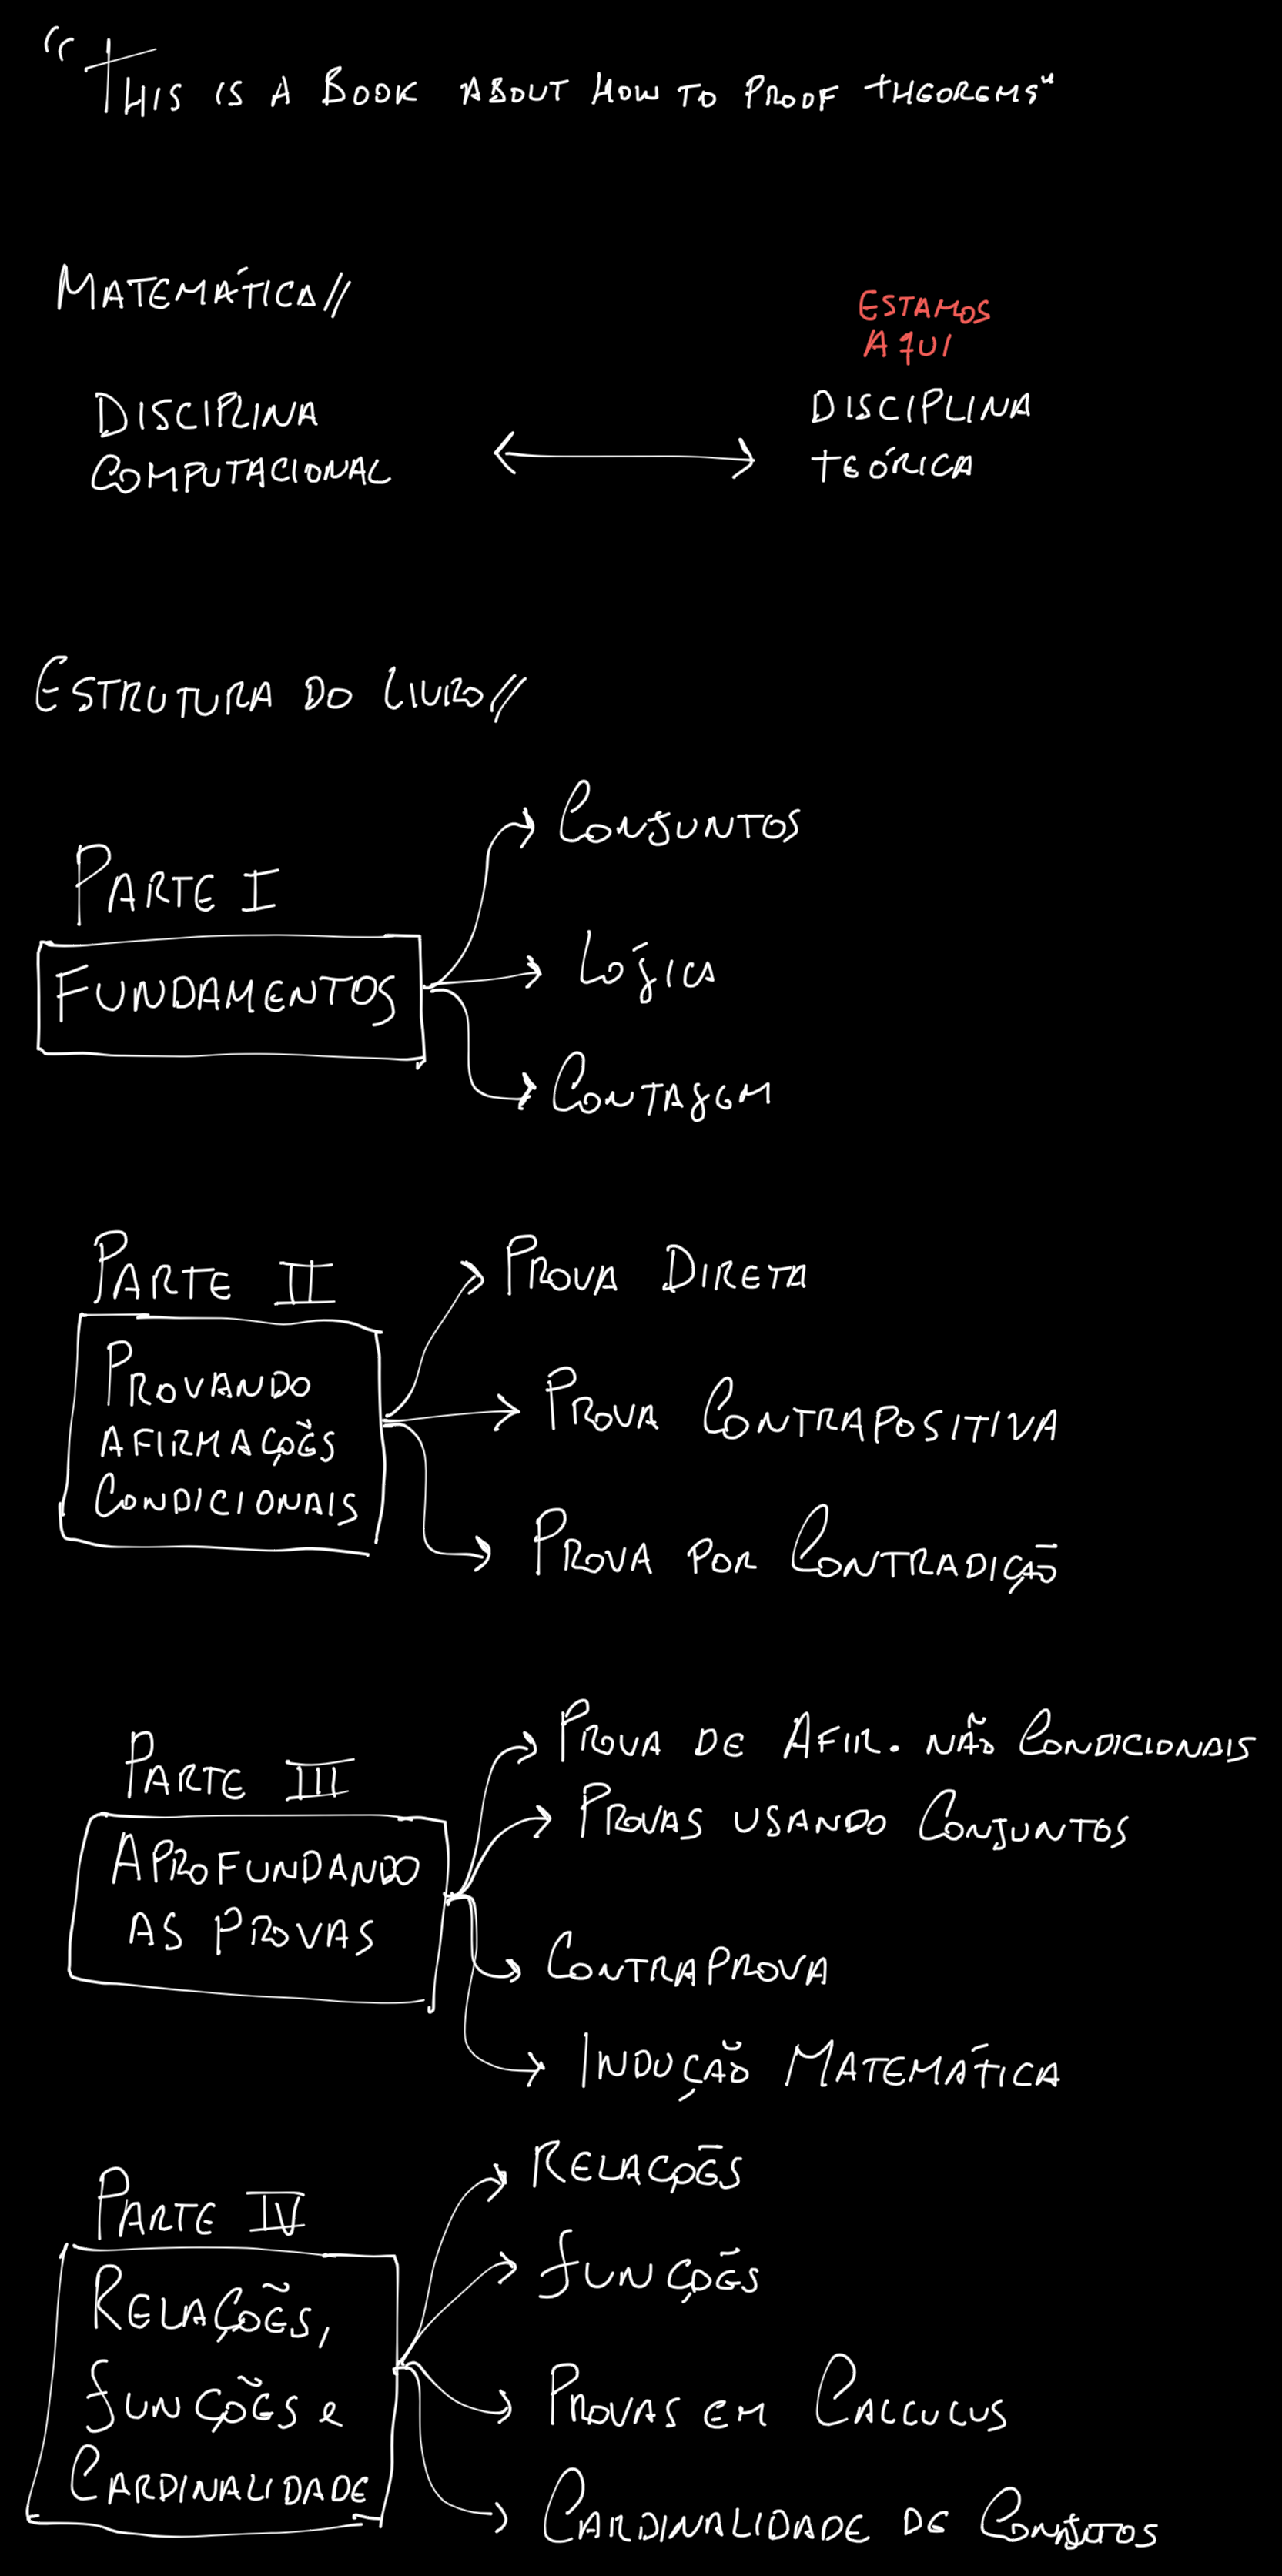 "THIS IS A BOOK ABOUT HOW TO PROOF THEOREMS"
MATEMÁTICA//
ESTAMOS
AQUI
DISCIPLINA
COMPUTACIONAL
DISCIPLINA
TEÓRICA
ESTRUTURA DO LIVRO//
PARTE I
FUNDAMENTOS
CONJUNTOS
LÓGICA
CONTAGEM
PARTE II
PROVANDO
AFIRMAÇÕES
CONDICIONAIS
PROVA DIRETA
PROVA CONTRAPOSITIVA
PROVA POR CONTRADIÇÃO
PARTE III
APROFUNDANDO
AS PROVAS
PROVA DE AFIR. NÃO CONDICIONAIS
PROVAS USANDO CONJUNTOS
CONTRAPROVA
INDUÇÃO MATEMÁTICA
PARTE IV
RELAÇÕES,
FUNÇÕES e
CARDINALIDADE
RELAÇÕES
FUNÇÕES
PROVAS EM CALCULUS
CARDINALIDADE DE CONJUTOS